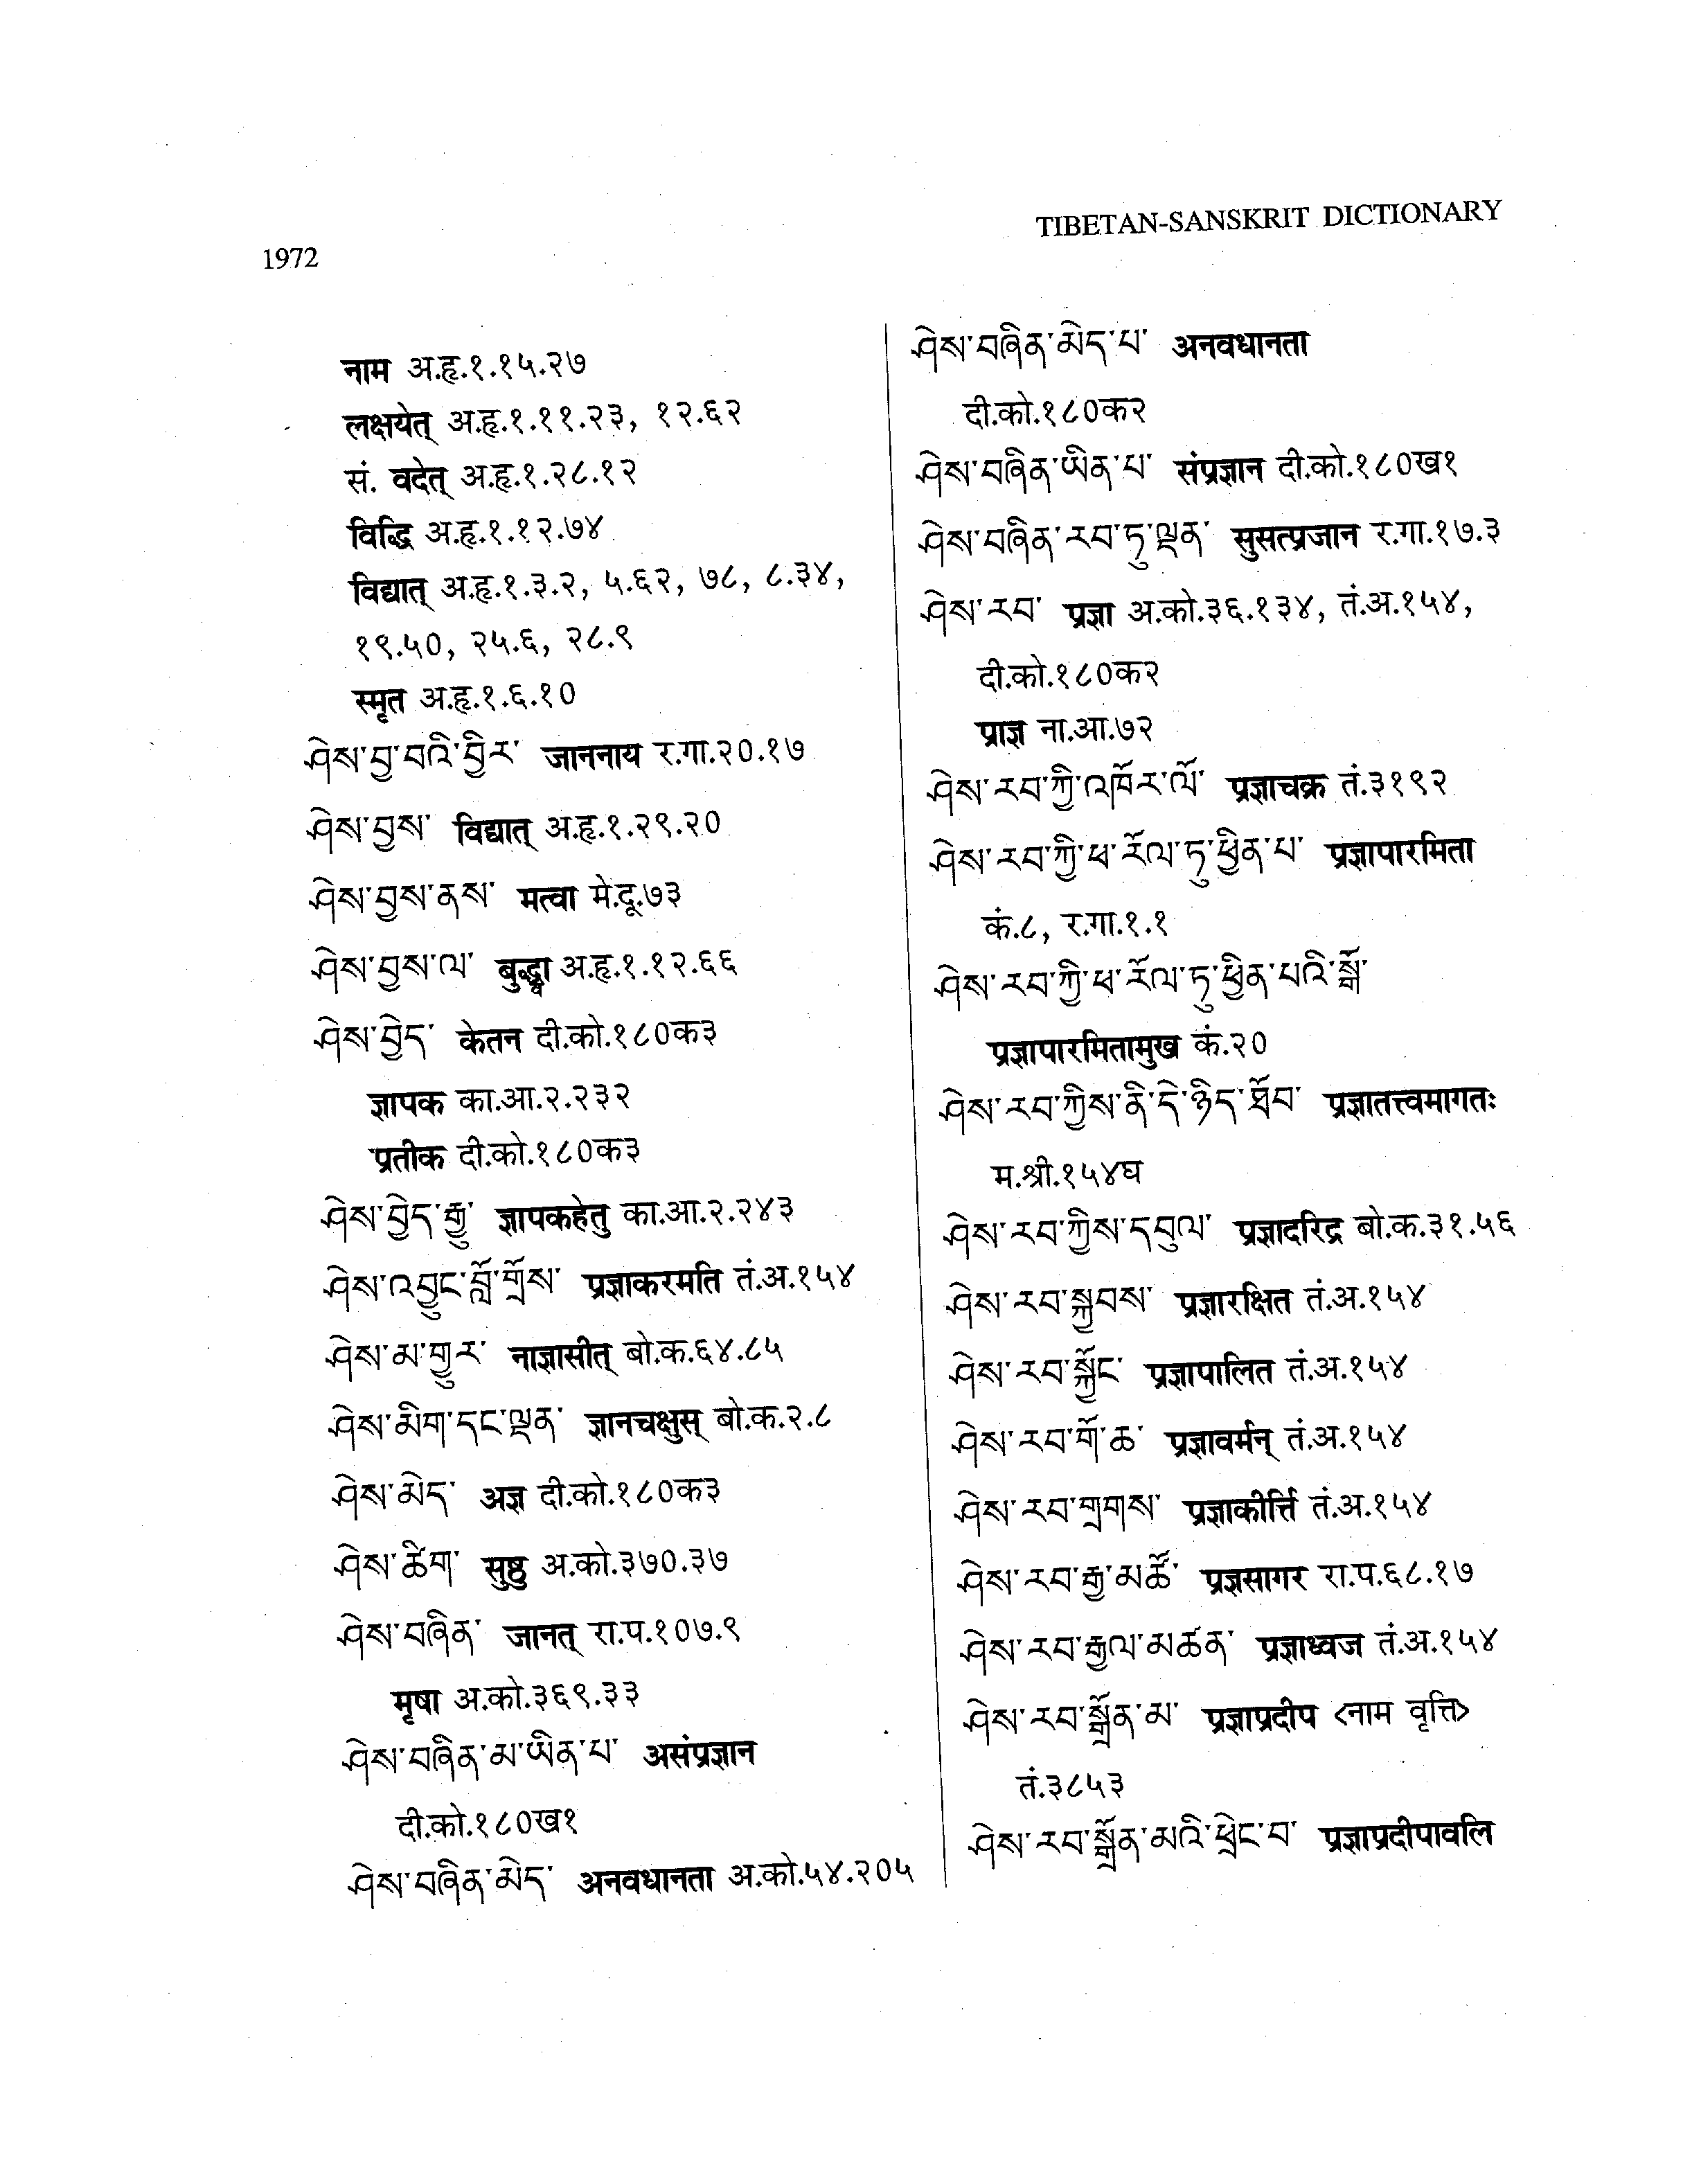 1972
TIBETAN-SANSKRIT DICTIONARY
नाम अ.हृ.१.१५.२७
लक्षयेत् अ.हृ.१.११.२३, १२.६२
सं. वदेत् अ.हृ.१.२८.१२
विद्धि अ.हृ.१.१२.७४
विद्यात् अ.हृ.१.३.२, ५.६२, ७८, ८.३४,
१९.५०, २५.६, २८.९
स्मृत अ.हृ.१.६.१०
ཤེས་བྱ་བའི་ཕྱིར་ जाननाय र.गा.२०.१७
ཤེས་བྱས་ विद्यात् अ.हृ.१.२९.२०
ཤེས་བྱས་ནས་ मत्वा मे.दू.७३
ཤེས་བྱས་ལ་ बुद्ध्वा अ.हृ.१.१२.६६
ཤེས་བྱེད་ केतन दी.को.१८०क३
ज्ञापक का.आ.२.२३२
प्रतीक दी.को.१८०क३
ཤེས་བྱེད་རྒྱུ་ ज्ञापकहेतु का.आ.२.२४३
ཤེས་འབྱུང་བློ་གྲོས་ प्रज्ञाकरमति तं.अ.१५४
ཤེས་མ་གྱུར་ नाज्ञासीत् बो.क.६४.८५
ཤེས་མིག་དང་ལྡན་ ज्ञानचक्षुस् बो.क.२.८
ཤེས་མེད་ अज्ञ दी.को.१८०क३
ཤེས་ཚིག་ सुष्ठु अ.को.३७०.३७
ཤེས་བཞིན་ जानत् रा.प.१०७.९
मृषा अ.को.३६९.३३
ཤེས་བཞིན་མ་ཡིན་པ་ असंप्रज्ञान
दी.को.१८०ख१
ཤེས་བཞིན་མེད་ अनवधानता अ.को.५४.२०५
ཤེས་བཞིན་མེད་པ་ अनवधानता
दी.को.१८०क२
ཤེས་བཞིན་ཡིན་པ་ संप्रज्ञान दी.को.१८०ख१
ཤེས་བཞིན་རབ་ཏུ་ལྡན་ सुसत्प्रजान र.गा.१७.३
ཤེས་རབ་ प्रज्ञा अ.को.३६.१३४, तं.अ.१५४,
दी.को.१८०क२
प्राज्ञ ना.आ.७२
ཤེས་རབ་ཀྱི་འཁོར་ལོ་ प्रज्ञाचक्र तं.३१९२
ཤེས་རབ་ཀྱི་ཕ་རོལ་ཏུ་ཕྱིན་པ་ प्रज्ञापारमिता
कं.८, र.गा.१.१
ཤེས་རབ་ཀྱི་ཕ་རོལ་ཏུ་ཕྱིན་པའི་སྒོ་
प्रज्ञापारमितामुख कं.२०
ཤེས་རབ་ཀྱིས་ནི་དེ་ཉིད་ཐོབ་ प्रज्ञातत्त्वमागतः
म.श्री.१५४घ
ཤེས་རབ་ཀྱིས་དབུལ་ प्रज्ञादरिद्र बो.क.३१.५६
ཤེས་རབ་སྐྱབས་ प्रज्ञारक्षित तं.अ.१५४
ཤེས་རབ་སྐྱོང་ प्रज्ञापालित तं.अ.१५४
ཤེས་རབ་གོ་ཆ་ प्रज्ञावर्मन् तं.अ.१५४
ཤེས་རབ་གྲགས་ प्रज्ञाकीर्त्ति तं.अ.१५४
ཤེས་རབ་རྒྱ་མཚོ་ प्रज्ञसागर रा.प.६८.१७
ཤེས་རབ་རྒྱལ་མཚན་ प्रज्ञाध्वज तं.अ.१५४
ཤེས་རབ་སྒྲོན་མ་ प्रज्ञाप्रदीप <नाम वृत्ति>
तं.३८५३
ཤེས་རབ་སྒྲོན་མའི་ཕྲེང་བ་ प्रज्ञाप्रदीपावलि